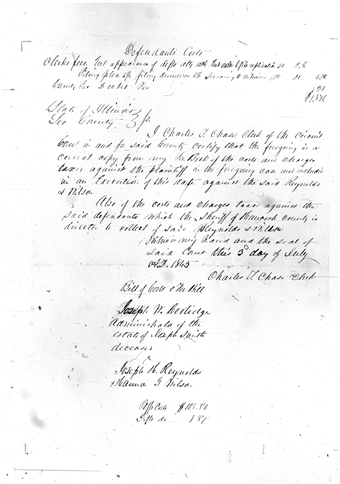 Defendants Costs
Clerks fees Ent appearance of defts atty
Filing plea 6½ filing demurrer 6¼
County
$1.87½
State of Illinois
Lee County } ss
I Charles T Chase Clerk of the circuit
Court in and for said County certify that the foregoing is a
correct copy from my fee Book of the costs and charges
taxed against the plaintiff in the foregoing case and included
in an Execution of this date against the said Reynolds
& Wilson
Also of the costs and charges taxed against the
said defendants which the sheriff of Hancock County is
directed to collect of said Reynolds & Wilson
Witness my hand and the seal of
said Court this 5th day of July
A.D. 1845
Charles T Chase Clerk
Bill of Costs & Fee Bill
Joseph W. Coolidge
Administrator of the
estate of Joseph Smith
deceased
vs
Joseph H. Reynolds
& Harmon T. Wilson
Plffs Costs
Defts do 1 87½